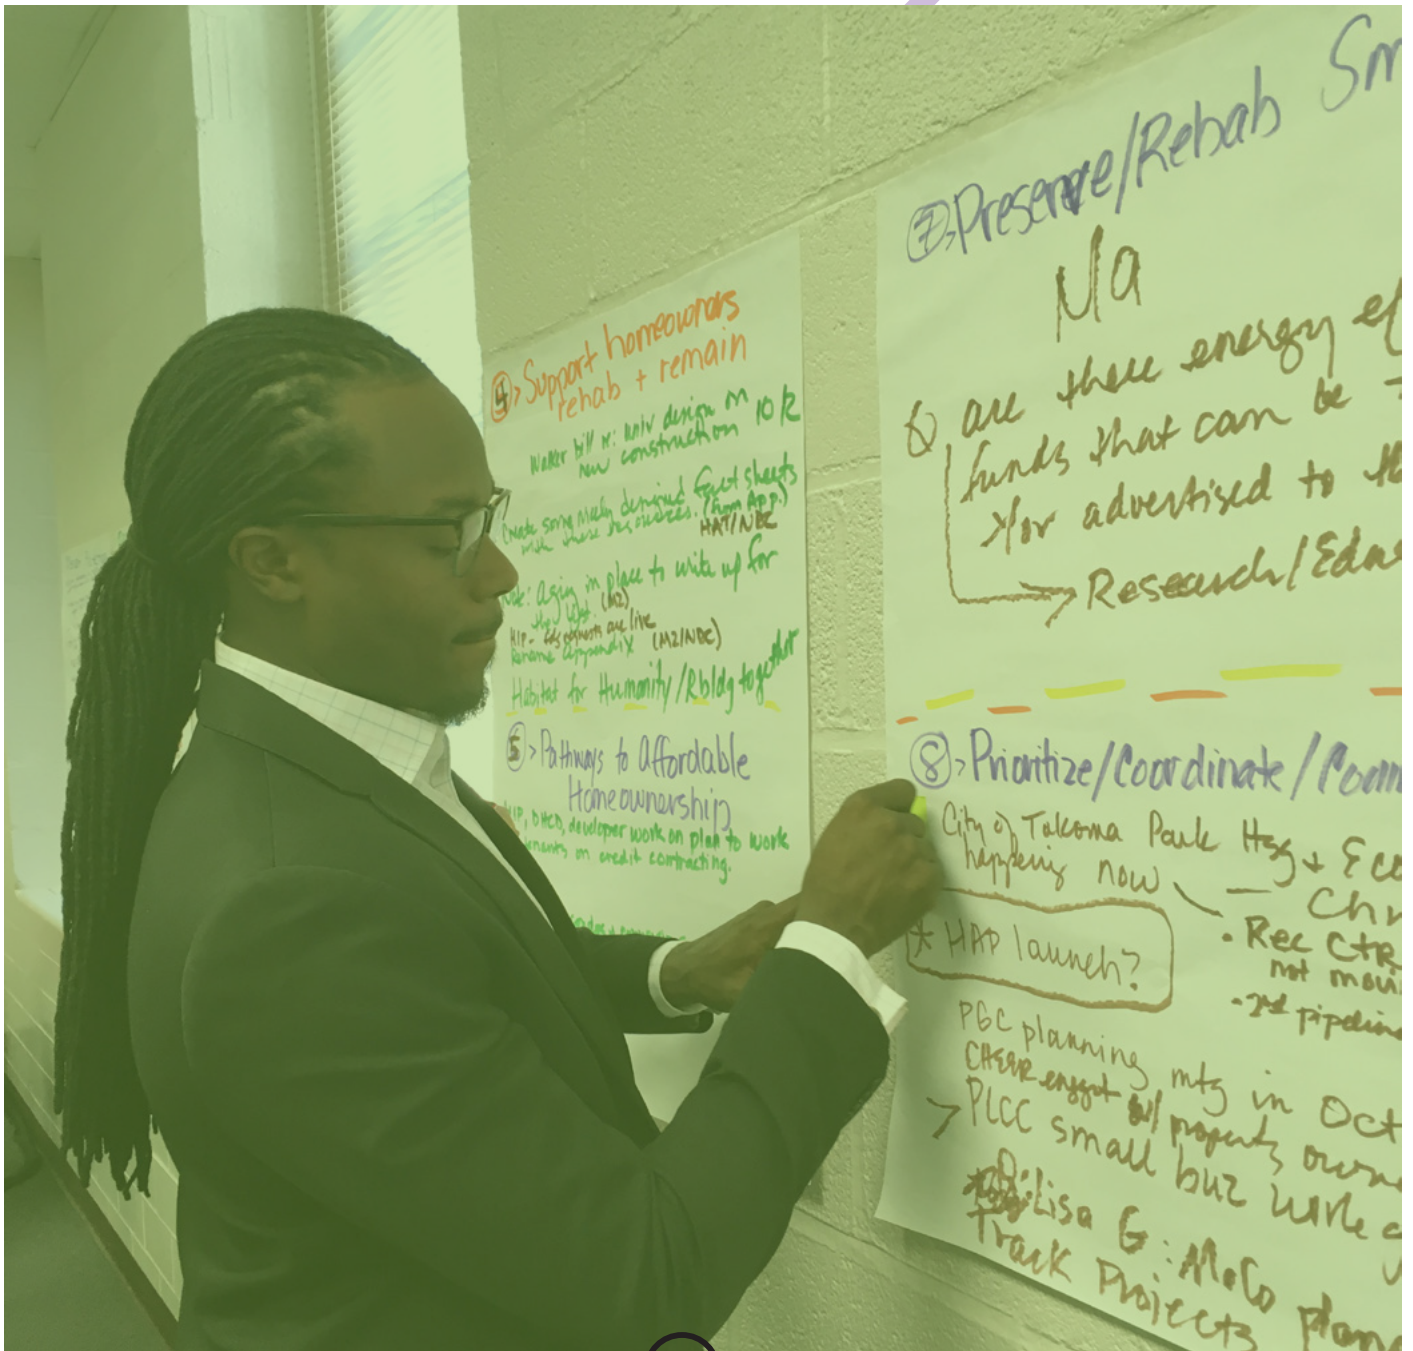 4 > Support homeowners
rehab + remain
Walker bill re: univ design in
new construction 10/2
Create some nicely designed fact sheets
with these resources. (from App.)
HAT/NDC
Note: aging in place to write up for
(M2)
HIP - are live
Rename appendix (M2/NDC)
Habitat for Humanity/Rbldg together
5 > Pathways to Affordable
Homeownership
HIP, DHCD, developer work on plan to work
tenants on credit contracting.
7 > Preserve/Rehab Sm
Ma
Q are there energy ef
funds that can be
for advertised to th
Research/Edu
8 > Prioritize/Coordinate/Comm
City of Takoma Park Hsg + Eco
happening now
Chr
• Rec Ctr
not movi
* HAP launch?
• 2nd pipeline
PGC planning mtg in Oct
CHEER engmt w/ property owne
> PLCC small buz
Lisa G: MoCo plann
Track Projects